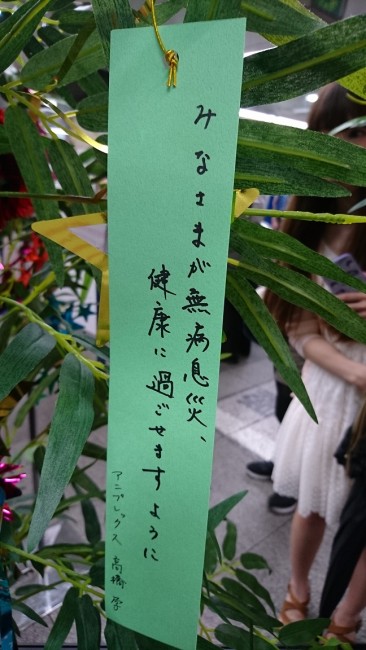 みなさまが無病息災、
健康に過ごせますように
アニプレックス 高橋 学